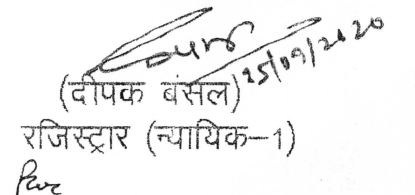 25/09/2020
(दीपक बंसल)
रजिस्ट्रार (न्यायिक-1)